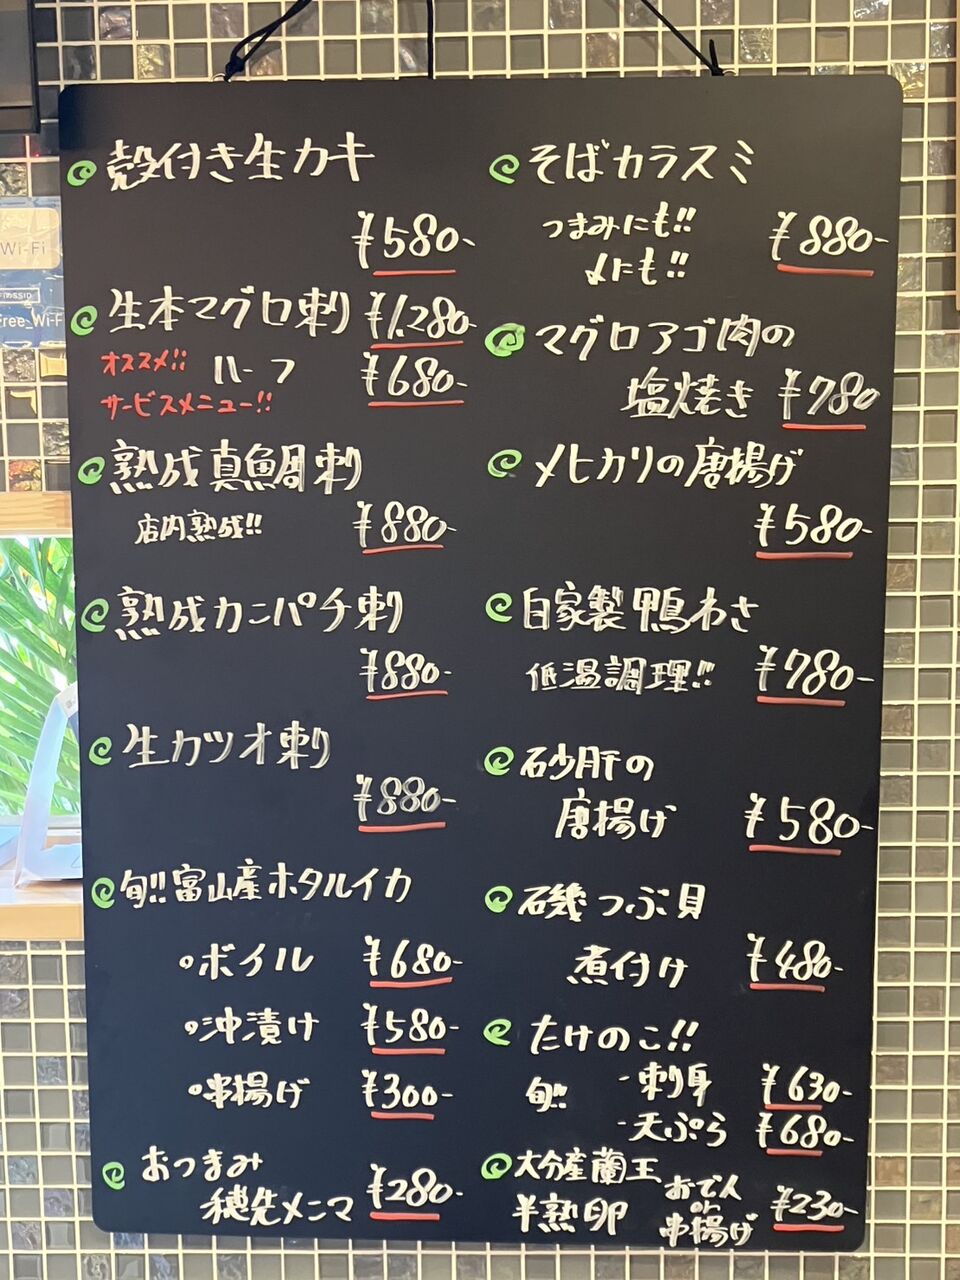 殻付き生カキ
¥580-
生本マグロ刺 ¥1,280-
オススメ!! ハーフ ¥680-
サービスメニュー!!
熟成真鯛刺
店内熟成!! ¥880-
熟成カンパチ刺
¥880-
生カツオ刺
¥880-
旬!!富山産ホタルイカ
ボイル ¥680-
沖漬け ¥580-
串揚げ ¥300-
おつまみ
穂先メンマ ¥280-
そばカラスミ
つまみにも!! ¥880-
〆にも!!
マグロアゴ肉の
塩焼き ¥780
メヒカリの唐揚げ
¥580-
自家製鴨わさ
低温調理!! ¥780-
砂肝の
唐揚げ ¥580-
磯つぶ貝
煮付け ¥480-
たけのこ!!
旬!! ・刺身 ¥630-
・天ぷら ¥680-
大分産蘭王
半熟卵 おでん or 串揚げ ¥230-
Wi-Fi
Free Wi-F